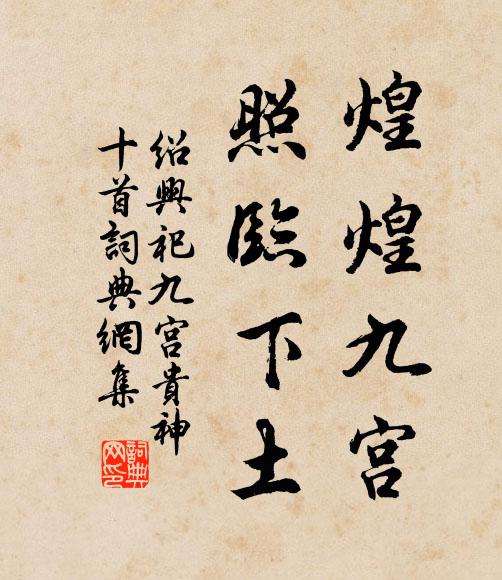 煌煌九宮
照臨下土
紹興祀九宮貴神
十首詞典網集
詞典网印